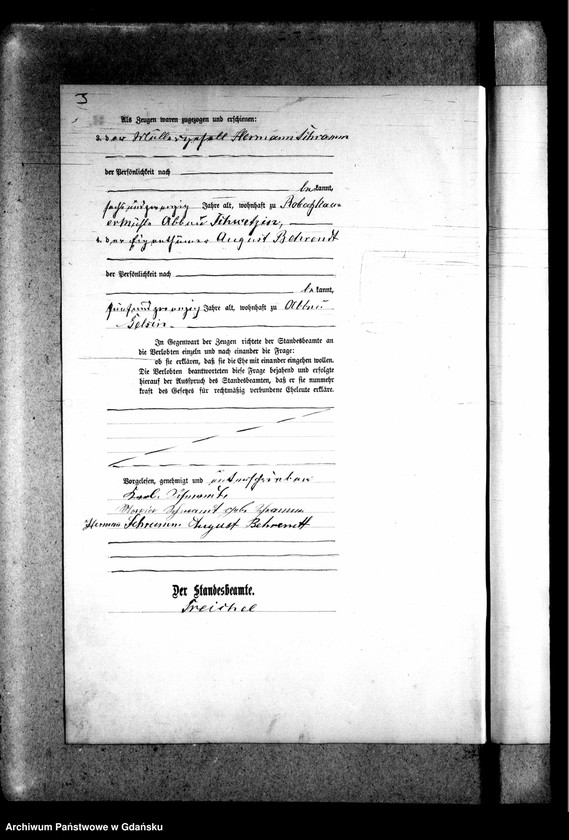 Als Zeugen waren zugezogen und erschienen:
3. der Müllergesell Hermann Schramm
der Persönlichkeit nach
be kannt,
sechsundzwanzig Jahre alt, wohnhaft zu
Abbau
4. der Eigenthümer August Behrendt
der Persönlichkeit nach
be kannt,
fünfundzwanzig Jahre alt, wohnhaft zu Abbau
In Gegenwart der Zeugen richtete der Standesbeamte an
die Verlobten einzeln und nach einander die Frage:
ob sie erklären, daß sie die Ehe mit einander eingehen wollen.
Die Verlobten beantworteten diese Frage bejahend und erfolgte
hierauf der Ausspruch des Standesbeamten, daß er sie nunmehr
kraft des Gesetzes für rechtmäßig verbundene Eheleute erkläre.
Vorgelesen, genehmigt und unterschrieben
Karl
geb. Schramm
Herman Schramm August Behrendt
Der Standesbeamte.
Treichel
Archiwum Państwowe w Gdańsku